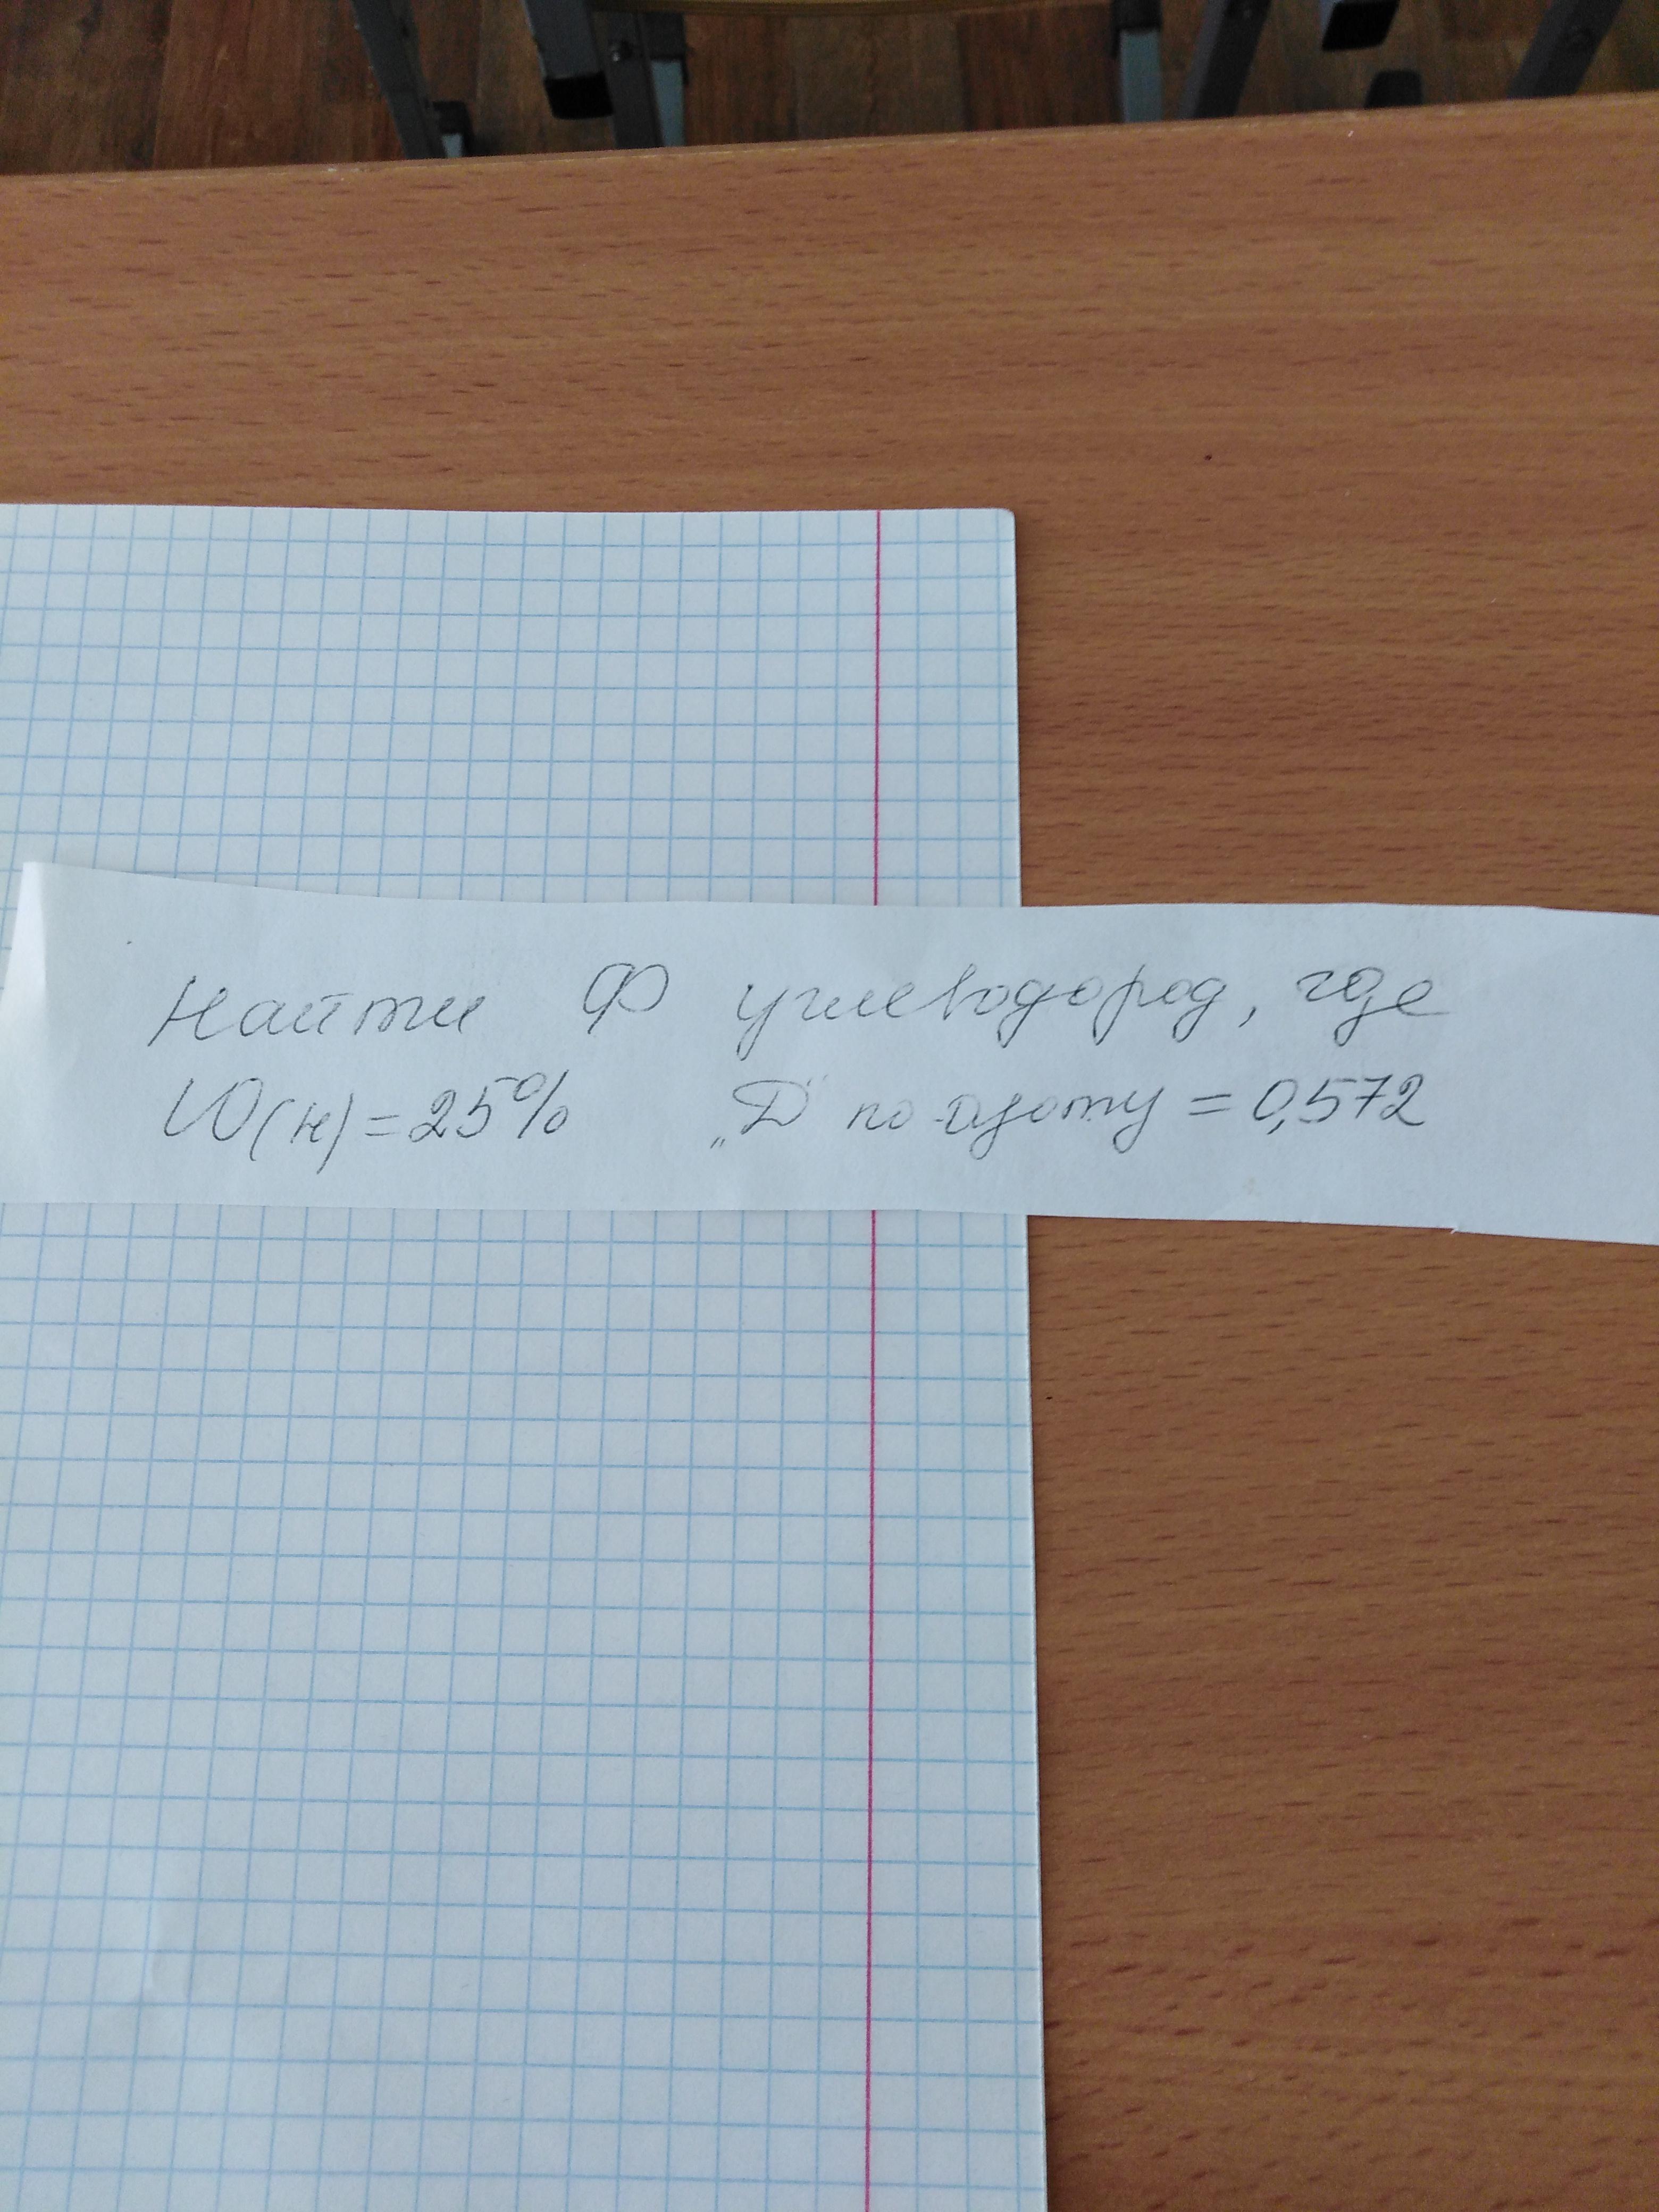 Найти Ф углеводород, где
W(н)=25% „D" по азоту = 0,572